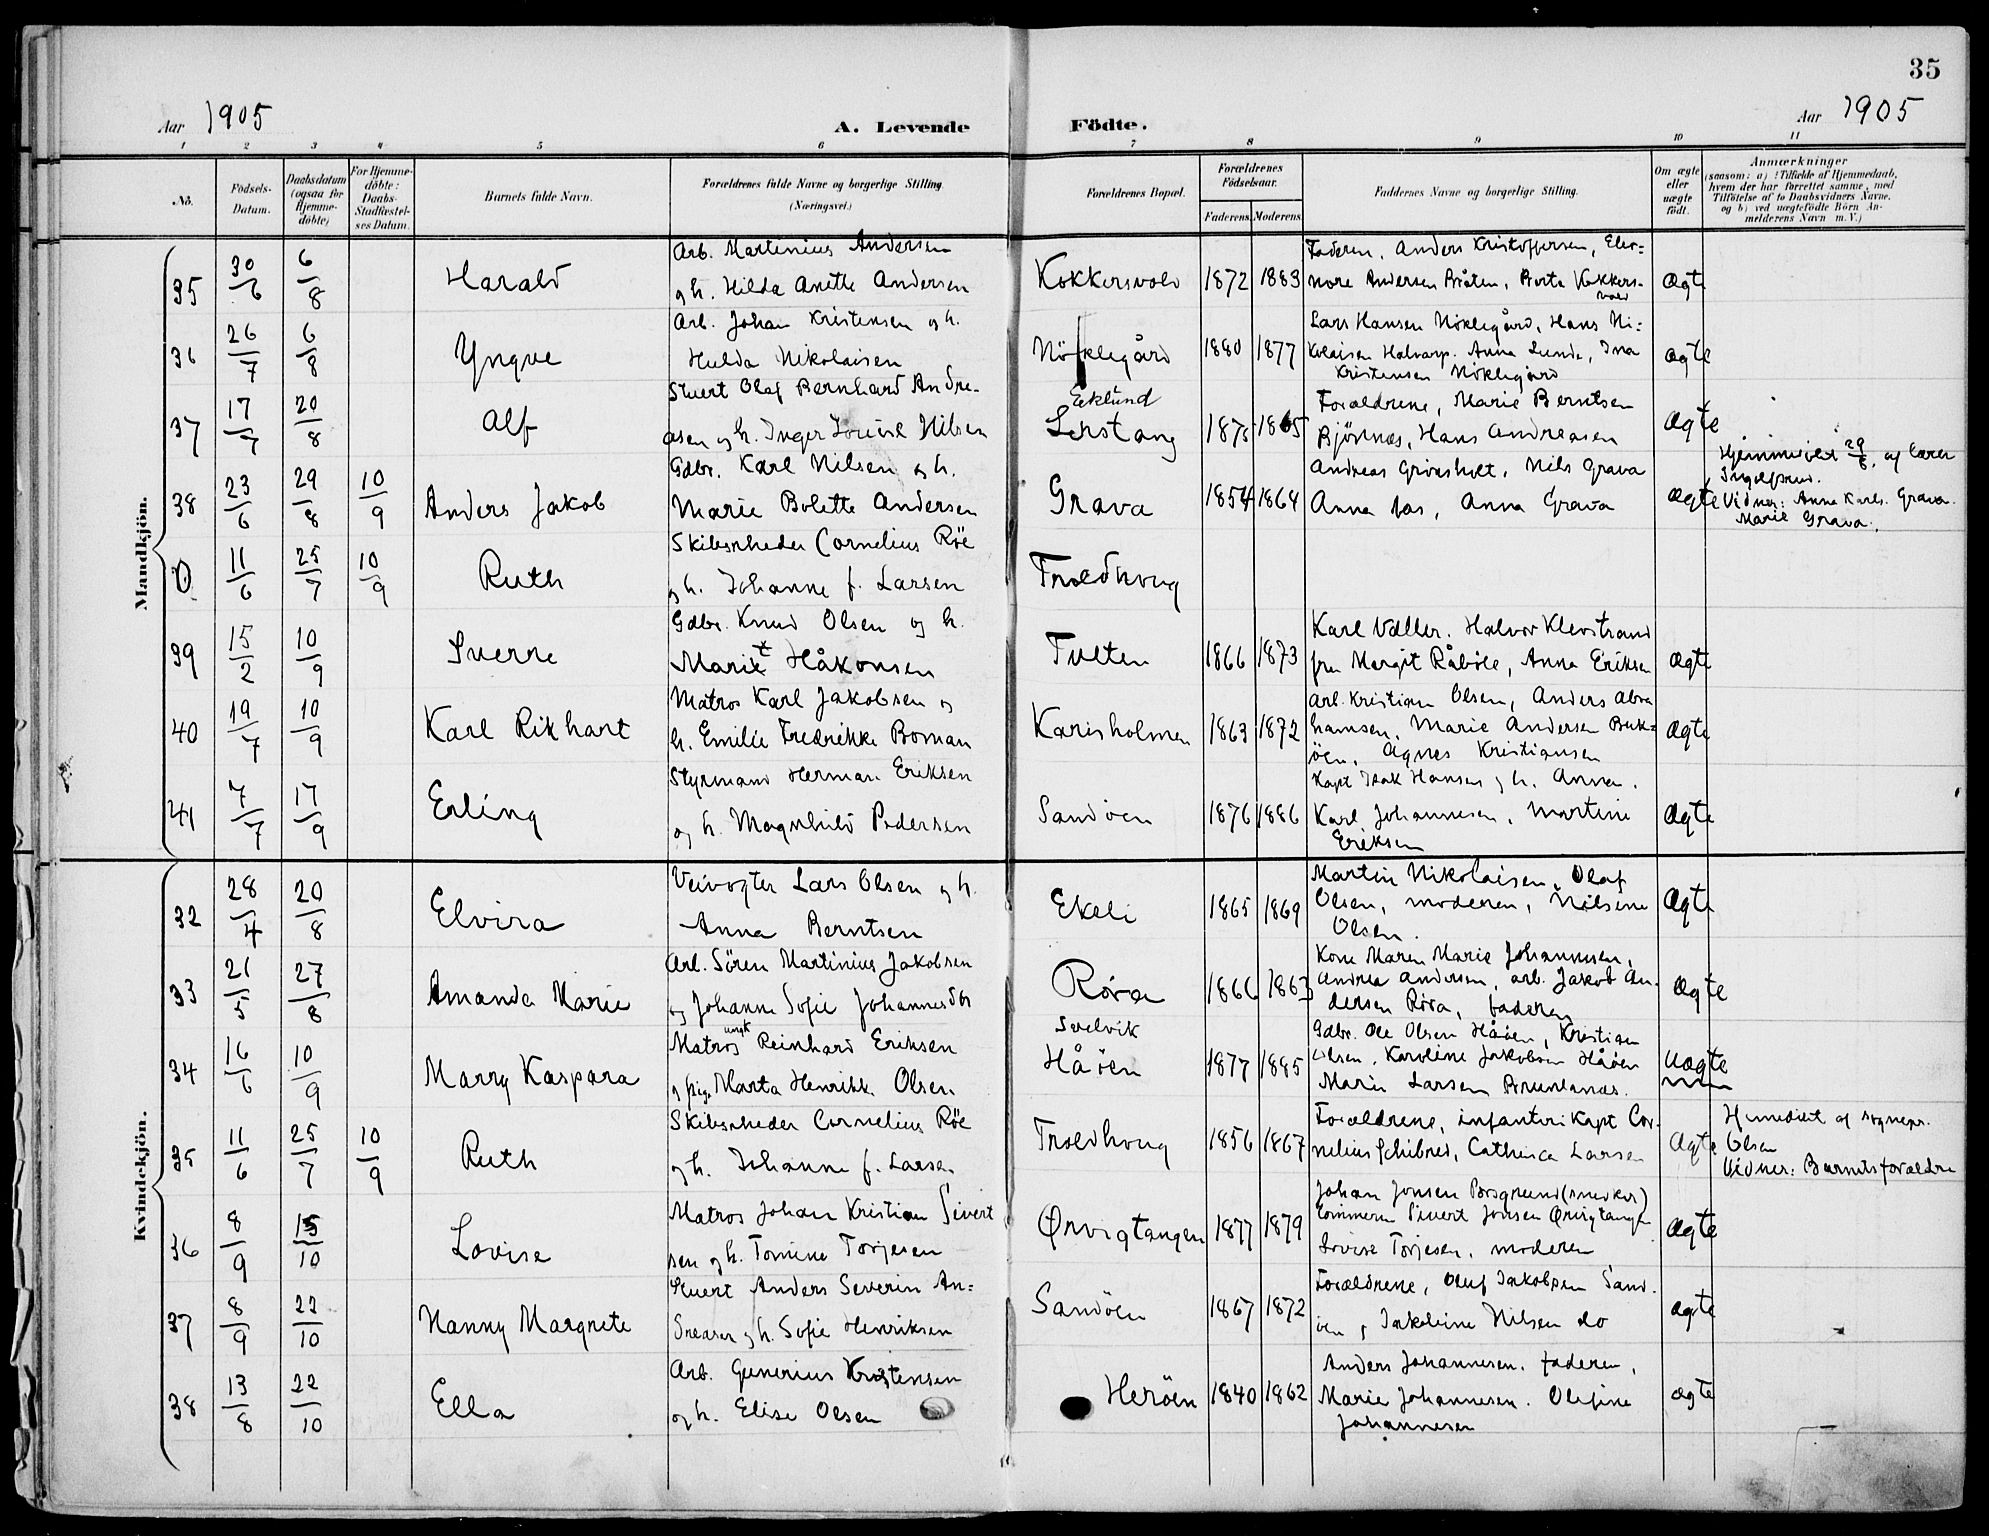 35
Aar 1905
A. Levende Födte.
Aar 1905
1 2 3 4 5 6 7 8 9 10 11
No.
Födsels-Datum.
Daabsdatum (ogsaa for Hjemme-döbte)
For Hjemme-döbte: Daabs-Stadfæstel-ses Datum.
Barnets fulde Navn.
Forældrenes fulde Navne og borgerlige Stilling. (Næringsvei.)
Forældrenes Bopæl.
Forældrenes Födselsaar.
Faderens Moderens
Faddernes Navne og borgerlige Stilling.
Om ægte eller uægte födt.
Anmærkninger
(saasom: a) i Tilfælde af Hjemmedaab,
hvem der har forrettet samme, med
Tilföielse af to Daabsvidners Navne,
og b) ved uægtefödte Börn An-
melderens Navn m.V.)
Mandkjön.
35 30/6 6/8 Harald
Arb. Martinius Andersen
og h. Hilda Anette Andersen
Kokkersvold 1872 1883
Faderen, Anders Kristoffersen, Eleo-
nore Andersen Bråten, Berta Kokkers-
vold
ægte
36 26/7 6/8 Yngve
Arb. Johan Kristensen og h.
Hulda Nikolaisen
Nöklegård 1880 1877
Lars Hansen Nöklegård, Hans Ni-
kolaisen Halvarp. Anna Lunde, Ina
Kristensen Nöklegård
ægte
37 17/7 20/8 Alf
Stuert Olaf Bernhard Andre-
asen og h. Inger Lovise Nilsen
Eeklund
Lerstang 1875 1865
Forældrene, Marie Berntsen
Björnnes, Hans Andreasen
ægte
38 23/6 29/8 10/9 Anders Jakob
Gdbr. Karl Nilsen og h.
Marie Bolette Andersen
Grava 1854 1864
Andreas Grönsholt, Nils Grava
Anna Aas, Anna Grava
ægte
Hjemmedöbt 29/6, af lærer
Vidner: Anna Karls. Grava
Marie Grava.
0 11/6 25/7 10/9 Ruth
Skibsrheder Cornelius Röe
og h. Johanne f. Larsen
Troldhoug
39 15/2 10/9 Sverre
Gdbr. Knud Olsen og h.
Marit Håkonsen
Tveten 1866 1873
Karl Valler. Halvor Klevstrand
fru Margit Råböle, Anna Eriksen
ægte
40 19/7 10/9 Karl Rikhart
Matros Karl Jakobsen og
h. Emilie Fredrikke Boman
Karisholmen 1863 1872
Arb. Kristian Olsen, Anders Abra
hamsen, Marie Andersen Buk-
öen, Agnes Kristiansen
ægte
41 7/7 17/9 Erling
Styrmand Herman Eriksen
og h. Magnhild Pedersen
Sandöen 1876 1886
Kapt Isak Hansen og h. Anna.
Karl Johannesen, Martine
Eriksen
ægte
Kvindekjön.
32 28/4 20/8 Elvira
Veivogter Lars Olsen og h.
Anna Berntsen
Ekeli 1865 1869
Martin Nikolaisen, Olaf
Olsen, moderen, Nilsine
Olsen.
ægte
33 21/5 27/8 Amanda Marie
Arb. Sören Martinius Jakobsen
og Johanne Sofie Johannesdtr
Röra 1866 1863
Kone Maren Marie Johannesen,
Andrea Andersen, arb. Jakob An-
dersen Röra, faderen
ægte
34 16/6 10/9 Marry Kaspara
ungk
Matros Reinhard Eriksen
og pige Marta Henrikke Olsen
Svelvik
Håöen 1877 1885
Gdbr. Ole Olsen Håöen, Kristian
Olsen, Karoline Jakobsen Håöen
Marie Larsen Brunlanæs.
uægte
35 11/6 25/7 10/9 Ruth
Skibsrheder Cornelius Röe
og h. Johanne f. Larsen
Troldhoug 1856 1867
Forældrene, infanteri Kapt Cor-
nelius Schibred, Cathinca Larsen
ægte
Hjemmedöbt af sognepr.
Olsen
Vidner: Barnets forældre
36 8/9 15/10 Lovise
Matros Johan Kristian Sivert
sen og h. Tomine Torjesen
Ørvigtangen 1877 1879
Johan Jonsen Porsgrund (snedker)
tömmerm Sivert Jonsen Ørvigtangen
Lovise Torjesen, moderen
ægte
37 8/9 22/10 Nanny Margrete
Stuert Anders Severin An-
dreasen og h. Sofie Henriksen
Sandöen 1867 1872
Forældrene, Oluf Jakobsen Sand-
öen, Jakobine Nilsen do
ægte
38 13/8 22/10 Ella
Arb. Gunerius Kristensen
og h. Elise Olsen
Heröen 1840 1862
Anders Johannesen, faderen,
Marie Johannesen. Olefine
Johannesen
ægte